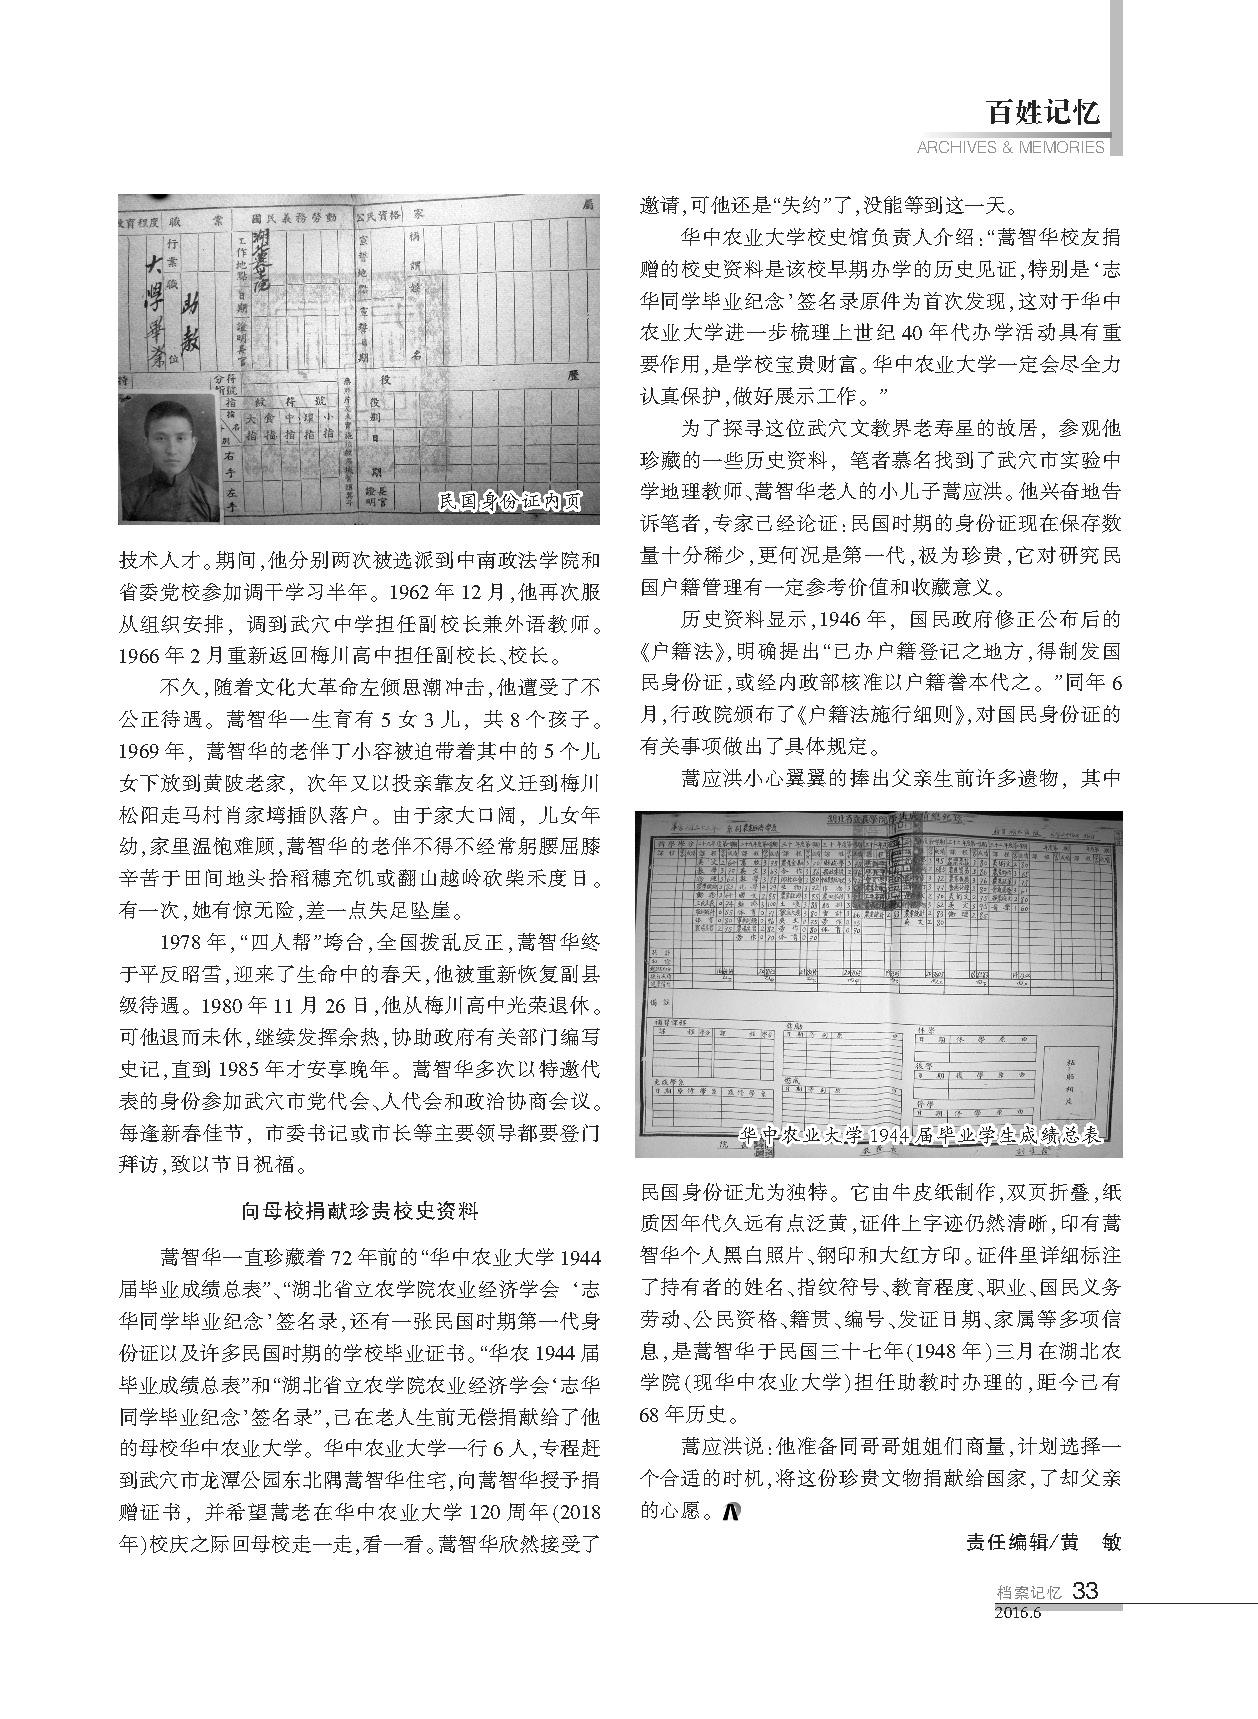 百姓记忆
ARCHIVES & MEMORIES
教育程度 職 業 國民義務勞動 公民資格 家 屬
行業 職位
大學畢業 助教
工作地點 日期 證明長官
宣誓地點 宣誓日期
稱謂 姓名
役 歷
役別 日期 證明長官
指紋符號
大指 食指 中指 環指 小指
右手
左手
民国身份证内页
技术人才。期间,他分别两次被选派到中南政法学院和
省委党校参加调干学习半年。1962年12月,他再次服
从组织安排，调到武穴中学担任副校长兼外语教师。
1966年2月重新返回梅川高中担任副校长、校长。
不久,随着文化大革命左倾思潮冲击,他遭受了不
公正待遇。蒿智华一生育有5女3儿，共8个孩子。
1969年，蒿智华的老伴丁小容被迫带着其中的5个儿
女下放到黄陂老家，次年又以投亲靠友名义迁到梅川
松阳走马村肖家塆插队落户。由于家大口阔，儿女年
幼,家里温饱难顾,蒿智华的老伴不得不经常躬腰屈膝
辛苦于田间地头拾稻穗充饥或翻山越岭砍柴禾度日。
有一次,她有惊无险,差一点失足坠崖。
1978年,“四人帮”垮台,全国拨乱反正,蒿智华终
于平反昭雪,迎来了生命中的春天,他被重新恢复副县
级待遇。1980年11月26日,他从梅川高中光荣退休。
可他退而未休,继续发挥余热,协助政府有关部门编写
史记,直到1985年才安享晚年。蒿智华多次以特邀代
表的身份参加武穴市党代会、人代会和政治协商会议。
每逢新春佳节，市委书记或市长等主要领导都要登门
拜访,致以节日祝福。
向母校捐献珍贵校史资料
蒿智华一直珍藏着72年前的“华中农业大学1944
届毕业成绩总表”、“湖北省立农学院农业经济学会‘志
华同学毕业纪念’签名录,还有一张民国时期第一代身
份证以及许多民国时期的学校毕业证书。“华农1944届
毕业成绩总表”和“湖北省立农学院农业经济学会‘志华
同学毕业纪念’签名录”,已在老人生前无偿捐献给了他
的母校华中农业大学。华中农业大学一行6人,专程赶
到武穴市龙潭公园东北隅蒿智华住宅,向蒿智华授予捐
赠证书，并希望蒿老在华中农业大学120周年(2018
年)校庆之际回母校走一走,看一看。蒿智华欣然接受了
邀请,可他还是“失约”了,没能等到这一天。
华中农业大学校史馆负责人介绍:“蒿智华校友捐
赠的校史资料是该校早期办学的历史见证,特别是‘志
华同学毕业纪念’签名录原件为首次发现,这对于华中
农业大学进一步梳理上世纪40年代办学活动具有重
要作用,是学校宝贵财富。华中农业大学一定会尽全力
认真保护,做好展示工作。”
为了探寻这位武穴文教界老寿星的故居，参观他
珍藏的一些历史资料，笔者慕名找到了武穴市实验中
学地理教师、蒿智华老人的小儿子蒿应洪。他兴奋地告
诉笔者,专家已经论证:民国时期的身份证现在保存数
量十分稀少,更何况是第一代,极为珍贵,它对研究民
国户籍管理有一定参考价值和收藏意义。
历史资料显示,1946年，国民政府修正公布后的
《户籍法》,明确提出“已办户籍登记之地方,得制发国
民身份证,或经内政部核准以户籍誊本代之。”同年6
月,行政院颁布了《户籍法施行细则》,对国民身份证的
有关事项做出了具体规定。
蒿应洪小心翼翼的捧出父亲生前许多遗物，其中
华中农业大学1944届毕业学生成绩总表
民国身份证尤为独特。它由牛皮纸制作,双页折叠,纸
质因年代久远有点泛黄,证件上字迹仍然清晰,印有蒿
智华个人黑白照片、钢印和大红方印。证件里详细标注
了持有者的姓名、指纹符号、教育程度、职业、国民义务
劳动、公民资格、籍贯、编号、发证日期、家属等多项信
息,是蒿智华于民国三十七年(1948年)三月在湖北农
学院(现华中农业大学)担任助教时办理的,距今已有
68年历史。
蒿应洪说:他准备同哥哥姐姐们商量,计划选择一
个合适的时机,将这份珍贵文物捐献给国家,了却父亲
的心愿。
责任编辑/黄　敏
档案记忆 33
2016.6